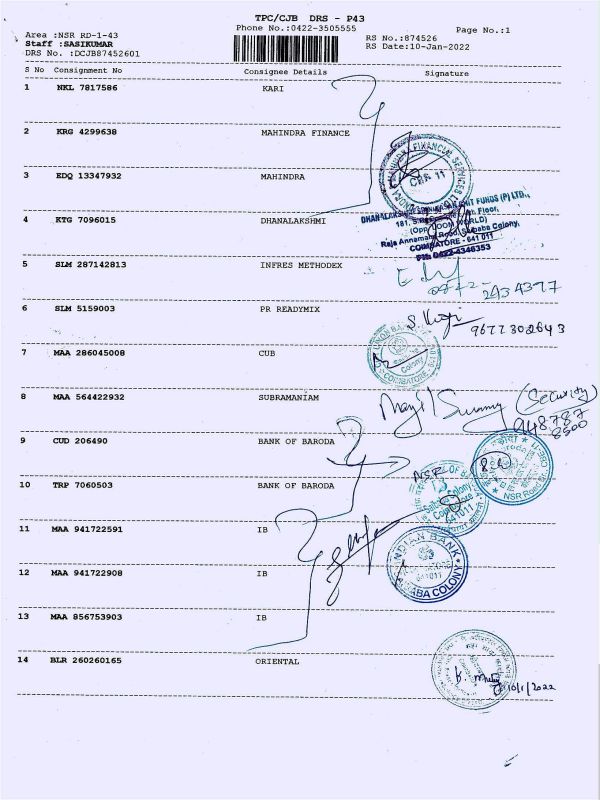 TPC/CJB DRS - P43
Phone No.:0422-3505555
Page No.:1
Area :NSR RD-1-43
Staff :SASIKUMAR
DRS No. :DCJB87452601
RS No.:874526
RS Date:10-Jan-2022
S No Consignment No Consignee Details Signature
1 NKL 7817586 KARI
2 KRG 4299638 MAHINDRA FINANCE
3 EDQ 13347932 MAHINDRA
4 KTG 7096015 DHANALAKSHMI
(P) LTD.,
COIMBATORE - 641 011
PH: 0422-4346353
5 SLM 287142813 INFRES METHODEX
0422-
2434377
6 SLM 5159003 PR READYMIX
9677302643
7 MAA 286045008 CUB
8 MAA 564422932 SUBRAMANIAM
(Security)
948787
8500
9 CUD 206490 BANK OF BARODA
NSR Road
10 TRP 7060503 BANK OF BARODA
641011
11 MAA 941722591 IB
INDIAN BANK
641011
12 MAA 941722908 IB
13 MAA 856753903 IB
14 BLR 260260165 ORIENTAL
10/1/2022